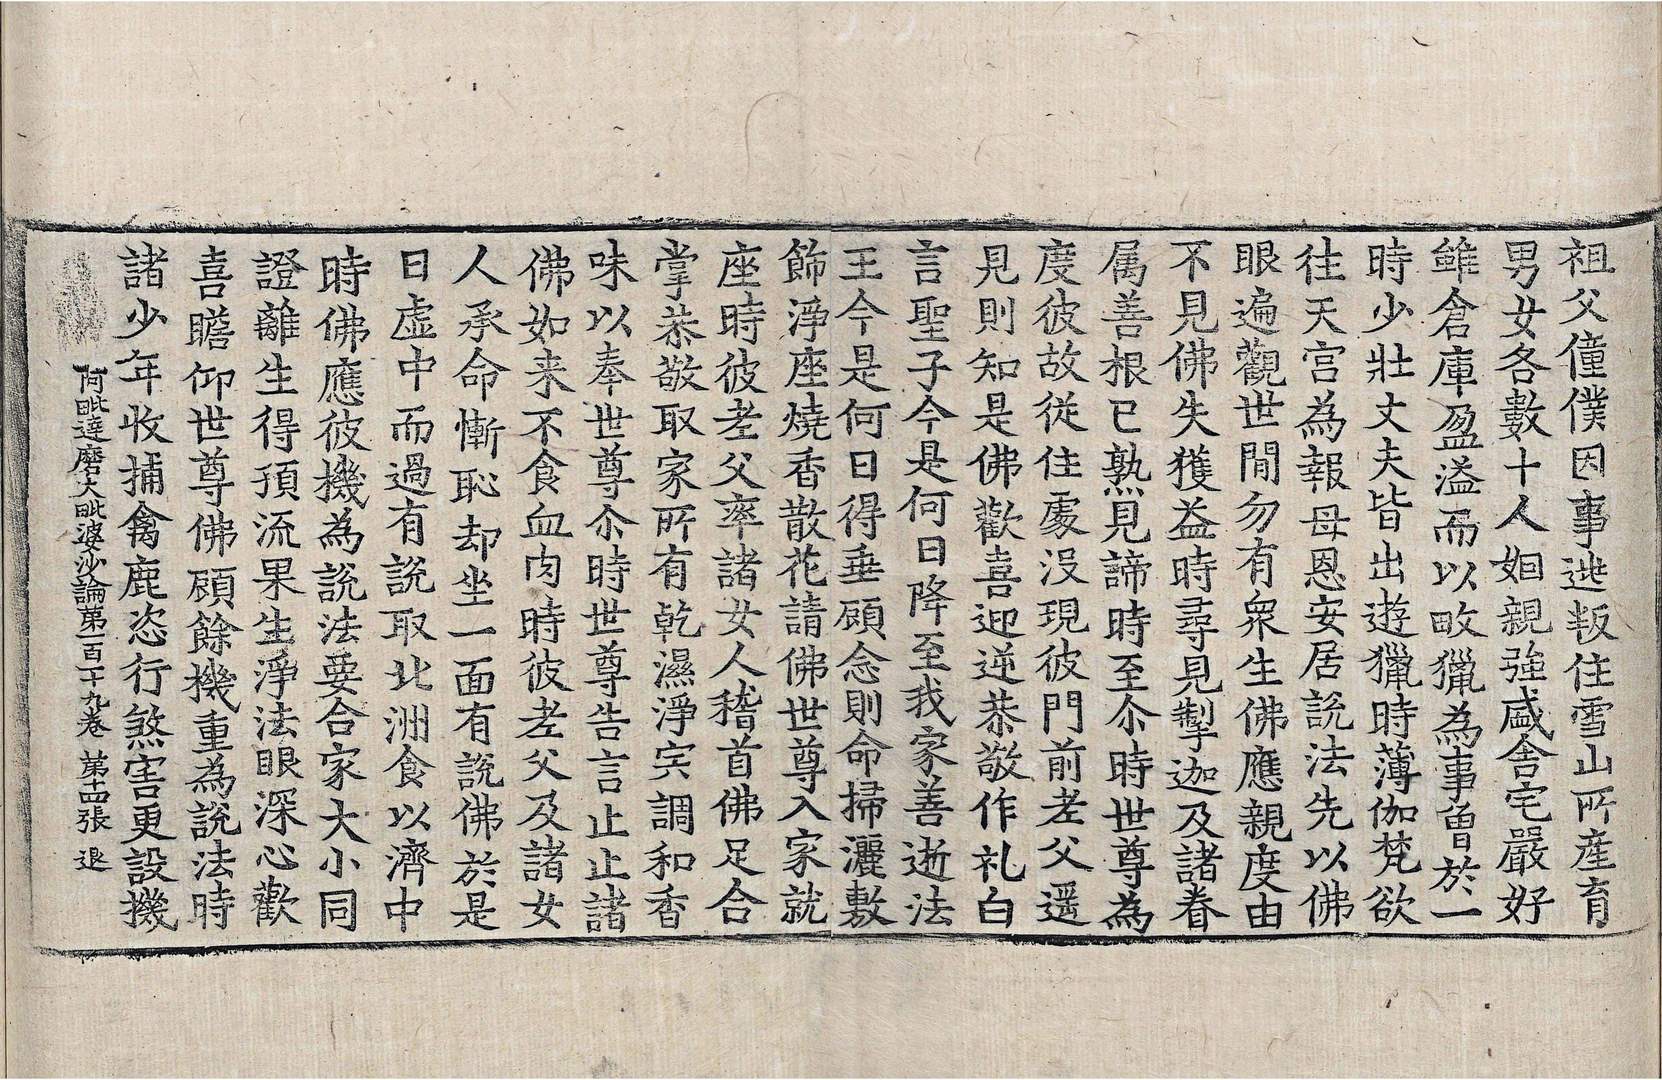 祖父僮僕因事逃叛住雪山所產育
男女各數十人姻親強盛舍宅嚴好
雖倉庫盈溢而以畋獵為事曾於一
時少壯丈夫皆出遊獵時薄伽梵欲
往天宮為報母恩安居說法先以佛
眼遍觀世間勿有衆生佛應親度由
不見佛失獲益時尋見掣迦及諸眷
属善根已熟見諦時至尒時世尊為
度彼故從住處沒現彼門前老父遥
見則知是佛歡喜迎逆恭敬作礼白
言聖子今是何日降至我家善逝法
王今是何日得垂顧念則命掃灑敷
飾淨座燒香散花請佛世尊入家就
座時彼老父率諸女人稽首佛足合
掌恭敬取家所有乾濕淨宍調和香
味以奉世尊尒時世尊告言止止諸
佛如来不食血肉時彼老父及諸女
人承命慚恥却坐一面有說佛於是
日虛中而過有說取北洲食以濟中
時佛應彼機為說法要合家大小同
證離生得預流果生淨法眼深心歡
喜瞻仰世尊佛顧餘機重為說法時
諸少年收捕禽鹿恣行煞害更設機
阿毗達磨大毗婆沙論第一百十九卷 第十四張 退